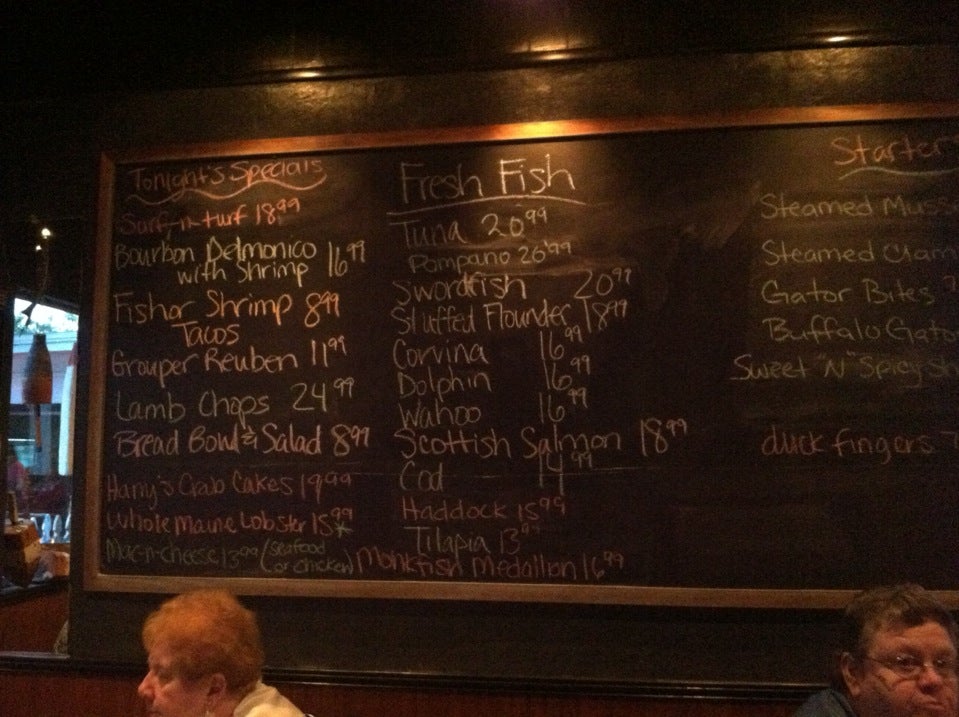 Tonight's Specials
Surf-n-turf 18.99
Bourbon Delmonico
with Shrimp 16.99
Fish or Shrimp 8.99
Tacos
Grouper Reuben 11.99
Lamb Chops 24.99
Bread Bowl & Salad 8.99
Harry's Crab Cakes 19.99
Whole Maine Lobster 15.99
Mac-n-cheese 13.99 (seafood
or chicken)
Fresh Fish
Tuna 20.99
Pompano 20.99
Swordfish 20.99
Stuffed Flounder 18.99
Corvina 16.99
Dolphin 16.99
Wahoo 16.99
Scottish Salmon 18.99
Cod 14.99
Haddock 15.99
Tilapia 13.99
Monkfish Medallion 16.99
Starter
Steamed Muss
Steamed Clam
Gator Bites
Buffalo Gato
Sweet "N" Spicy Sh
duck fingers